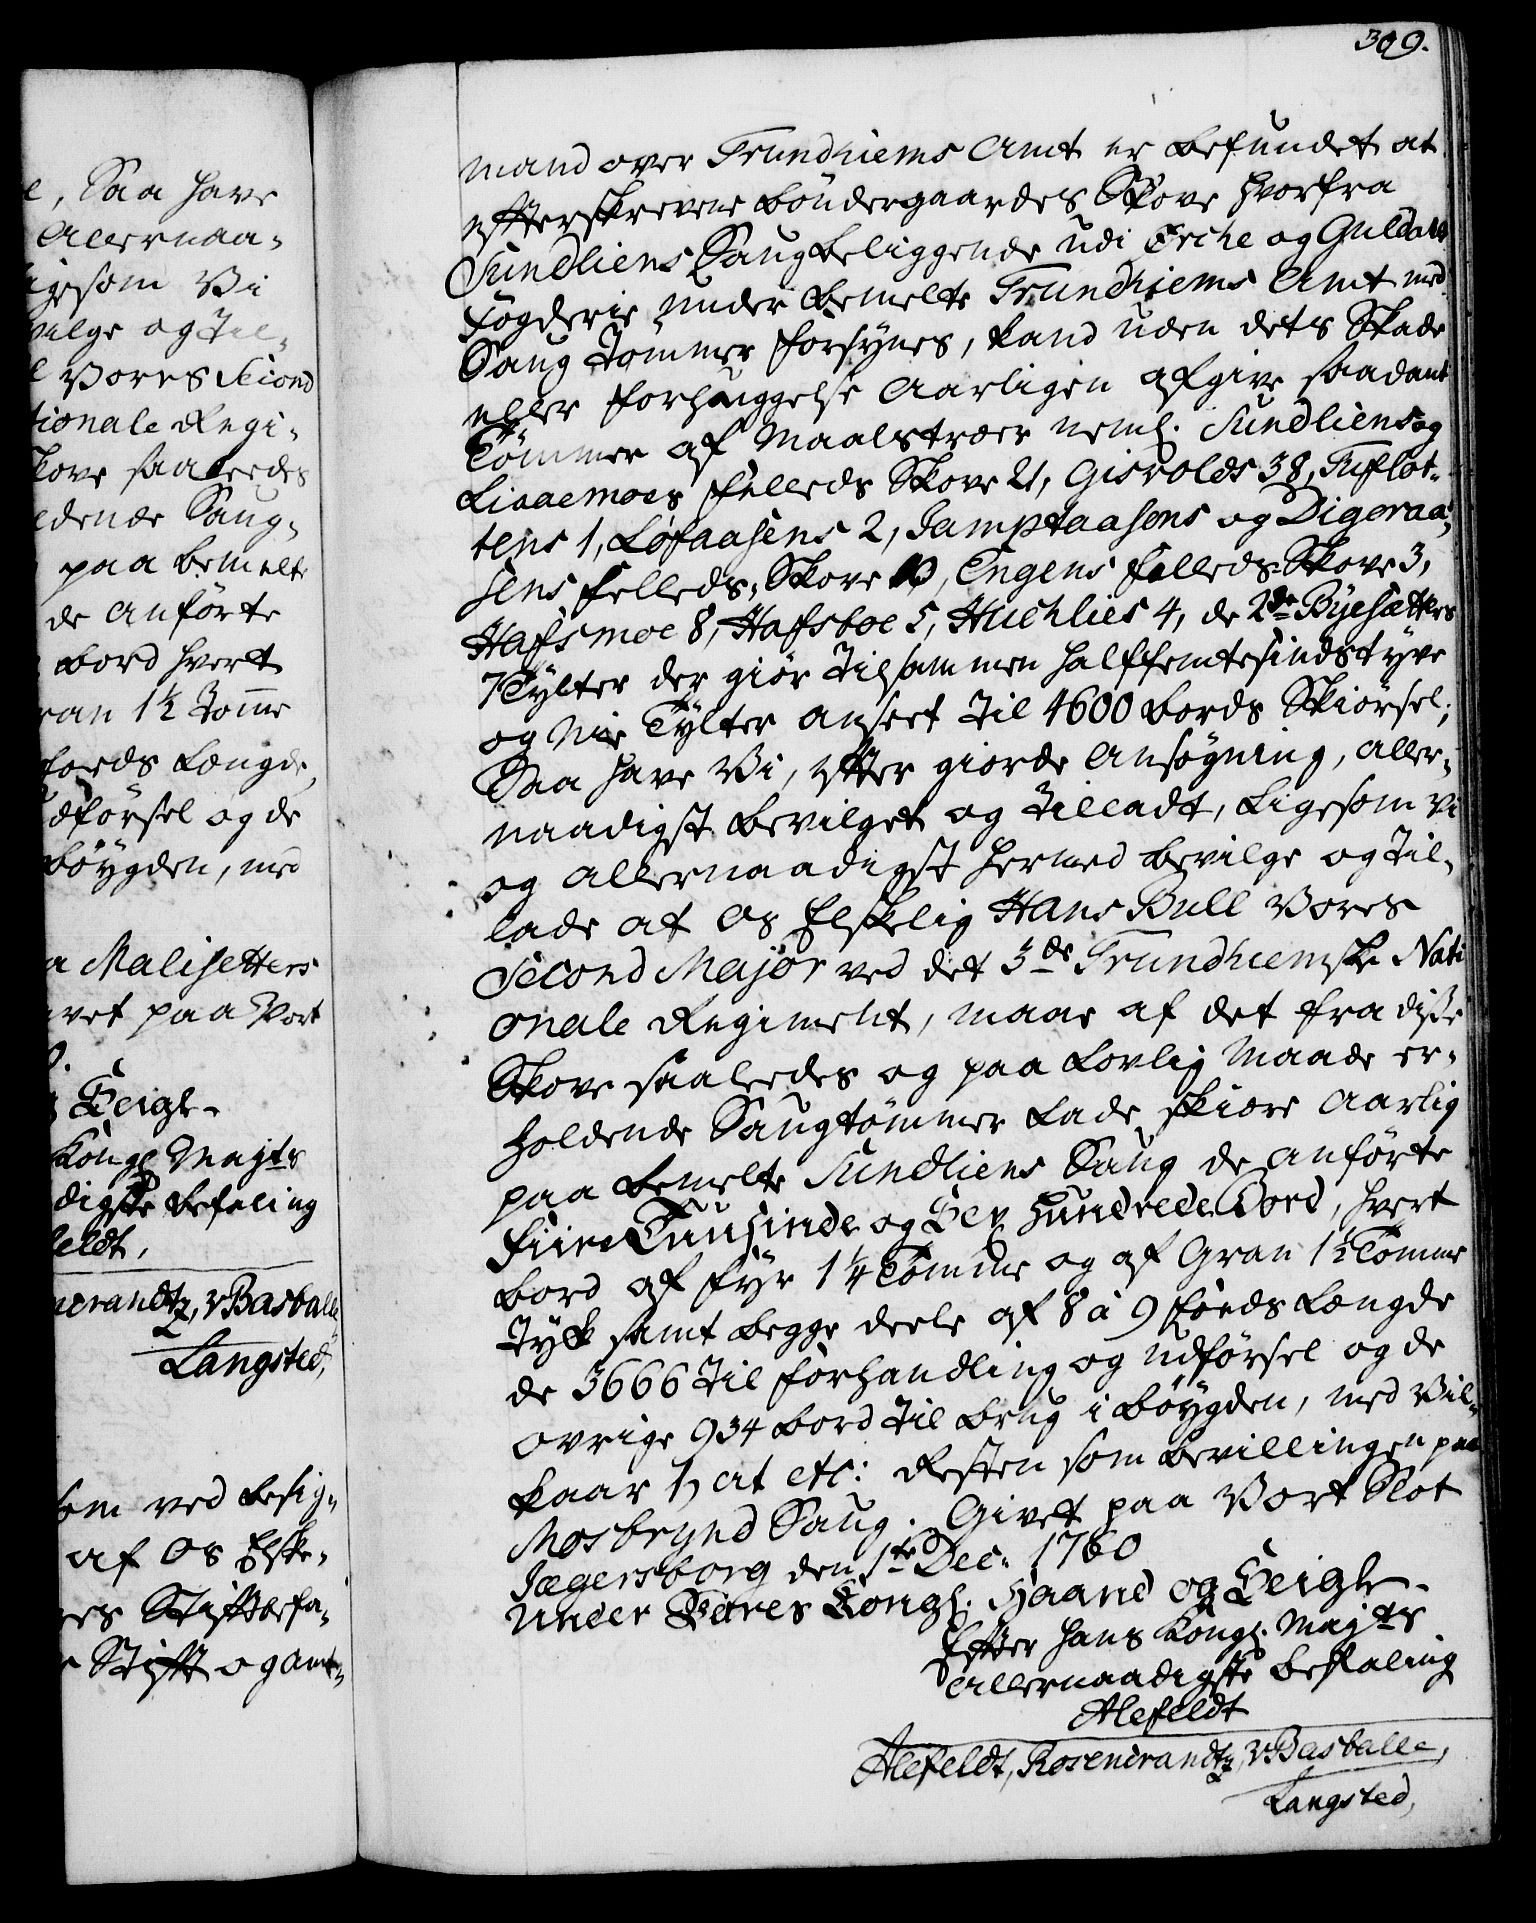 e, Saa have
Allernaa-
igesom Vi
vilge og Til-
l Vores Second
tionale Regi-
kove saaleedes
ldende Saug-
paa bemelte
de anførte
bord hvert
ran 1½ Tomme
foeds Længde,
dførsel og de
Böÿgden, med
a Malisetters
ivet paa Vort
0.
g Seigl.
Kongl Majts
digste Befaling
feldt,
ncrandtz, vBasballe
Langsted,
som ved besig-
af Os Elske-
res Stiftbefa-
r Stift og amt-
309.
mand over Trundhiems Amt er befundet at
efterskrevene Bøndergaardes Skove hvorfra
Sundliens Saug beliggende udi Orche og Guldahls
Fogderie under bemelte Trundhiems Amt med
Saug Tømmer forsynes, kand uden dets Skade
eller forhuggelse Aarligen afgive saadant
Tømmer af Maalstræer neml. Sundliens og
Liaaemoes Felleds Skove 21, Gisvolds 38, Tuflot-
tens 1, Løfaasens 2, Jamptaasens og Digeraa-
sens Felleds, Skove 10, Engens Felleds Skove 3,
Hafsmoe 8, Hafsboe 5, Huchlies 4, de 2de Byesætters
7 Tylter der giør tilsammen halffemtesindstyve
og Nie Tylter anseet til 4600 bords Skiørsel;
Saa have Vi, efter giorde Ansøgning, aller-
naadigst bevilget og tilladt, ligesom Vi
og allernaadigst hermed bevilge og til-
lade at Os Elskelig Hans Bull Vores
Second Major ved det 3de Trundhiemske Nati
onale Regiment, maae af det fra disse
Skove saaleedes og paa lovlig Maade er-
holdende Saugtømmer lade skiære aarlig
paa bemelte Sundliens Saug de anførte
Fiire Tuusinde og Sex Hundrede Bord, hvert
bord af Fyr 1¼ Tomme og af Gran 1½ Tomme
tyk samt begge deele af 8 à 9 foeds Længde
de 3666 til forhandling og udførsel og de
øvrige 934 bord til brug i Böÿgden, med Vil-
kaar 1) at etc: Resten som bevillingen paa
Mosbrynd Saug. Givet paa Vort Slot
Jægersborg den 1te Dec. 1760
Under Vores Kongl. Haand og Seigl.
Efter Hans Kongl. Majts
allernaadigste Befaling
Alefeldt
Alefeldt, Rosencrandtz, vBasballe,
Langsted,